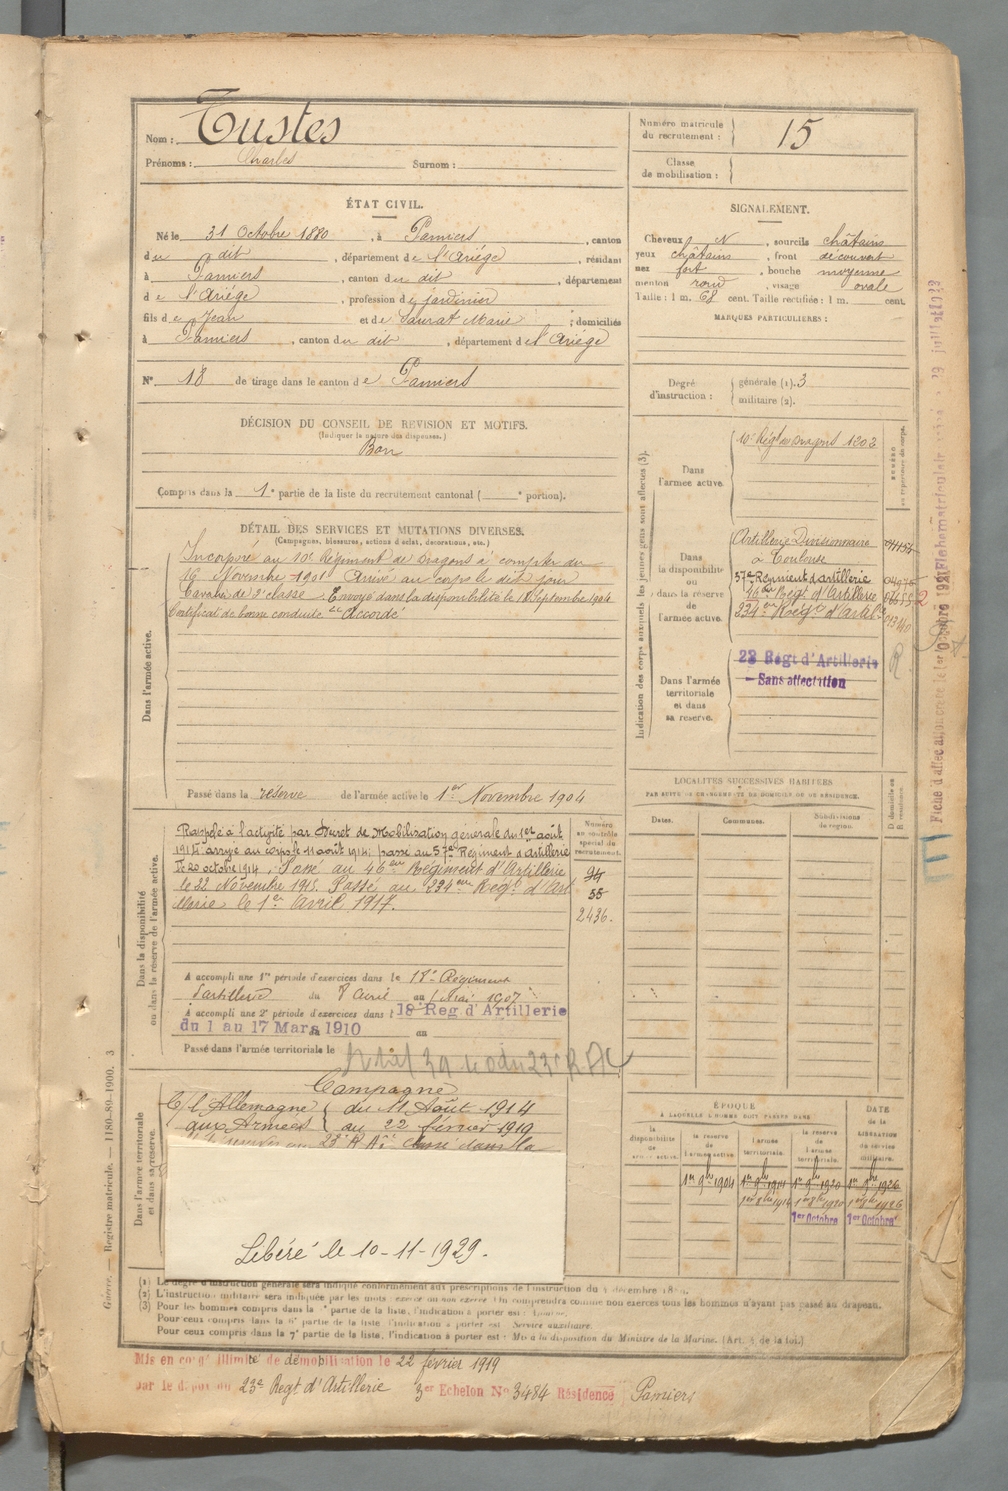 Nom : Tustes
Prénoms : Charles Surnom :
Numéro matricule du recrutement : 15
Classe de mobilisation :
ÉTAT CIVIL.
Né le 31 Octobre 1880, à Pamiers, canton
du dit, département de l'Ariége, résidant
à Pamiers, canton du dit, département
de l'Ariége, profession de jardinier
fils de Jean et de Saurat Marie ; domiciliés
à Pamiers, canton du dit, département de l'Ariége
N° 18 de tirage dans le canton de Pamiers
SIGNALEMENT.
Cheveux N, sourcils châtains
yeux châtains, front découvert
nez fort, bouche moyenne
menton rond, visage ovale
Taille : 1 m. 68 cent. Taille rectifiée : 1 m. cent.
MARQUES PARTICULIÈRES :
Degré d'instruction : générale (1). 3
militaire (2).
DÉCISION DU CONSEIL DE REVISION ET MOTIFS.
(Indiquer la nature des dispenses.)
Bon
Compris dans la 1e partie de la liste du recrutement cantonal ( e portion).
DÉTAIL DES SERVICES ET MUTATIONS DIVERSES.
(Campagnes, blessures, actions d'éclat, décorations, etc.)
Dans l'armée active.
Incorporé au 10e Régiment de Dragons à compter du
16 Novembre 1901 Arrivé au corps le dit jour
Cavalier de 2e classe. Envoyé dans la disponibilité le 18 Septembre 1904
Certificat de bonne conduite "Accordé"
Passé dans la réserve de l'armée active le 1er Novembre 1904
Indication des corps auxquels les jeunes gens sont affectés (3).
Dans l'armée active.
10e Régt de Dragons 1902
Dans la disponibilité ou dans la réserve de l'armée active.
Artillerie Divisionnaire
à Toulouse
57e Régiment d'artillerie
46eme Regt d'Artillerie
234eme Regt d'Artil
Dans l'armée territoriale et dans sa réserve.
23 Régt d'Artillerie
- Sans affectation
R
Dans la disponibilité ou dans la réserve de l'armée active.
Numéro au contrôle spécial du recrutement.
Rappelé à l'activité par Décret de Mobilisation générale du 1er août
1914 arrivé au corps le 11 août 1914; passé au 57e Régiment d'artillerie
le 20 octobre 1914. Passé au 46eme Régiment d'Artillerie
le 22 Novembre 1915. Passé au 234eme Regt d'Art
illerie le 1er Avril 1917.
55
2436.
A accompli une 1re période d'exercices dans le 18e Régiment
d'artillerie du 8 avril au Mai 1907
A accompli une 2e période d'exercices dans l 18 Reg d'Artillerie
du 1 au 17 Mars 1910 au
Passé dans l'armée territoriale le
LOCALITÉS SUCCESSIVES HABITÉES
PAR SUITE DE CHANGEMENTS DE DOMICILE OU DE RÉSIDENCE.
Dates. Communes. Subdivisions de région. D. domicile ou R. résidence.
Dans l'armée territoriale et dans sa réserve.
Campagne
C/ l'Allemagne { du 11 Août 1914
aux Armées { au 22 février 1919
Libéré le 10-11-1929.
ÉPOQUE
À LAQUELLE L'HOMME DOIT PASSER DANS
la disponibilité de l'armée active. la réserve de l'armée active. l'armée territoriale. la réserve de l'armée territoriale.
DATE de la LIBÉRATION du service militaire.
1er 9bre 1904 1er 9bre 1914 1er 9bre 1920 1er 9bre 1926
1er Octobre 1er Octobre
(1) Le degré d'instruction générale sera indiqué conformément aux prescriptions de l'instruction du
(2) L'instruction militaire sera indiquée par les mots : exercé ou non exercé. On comprendra comme non exercés tous les hommes n'ayant pas passé au drapeau.
(3) Pour les hommes compris dans la partie de la liste, l'indication à porter est :
Pour ceux compris dans la 6e partie de la liste, l'indication à porter est Service auxiliaire.
Pour ceux compris dans la 7e partie de la liste, l'indication à porter est : Mis à la disposition du Ministre de la Marine. (Art. 4 de la loi.)
Mis en congé illimité de démobilisation le 22 février 1919
par le dépôt du 23e Regt d'Artillerie 3er Echelon N° 3484 Résidence Pamiers
Guerre. — Registre matricule. — 1180-89-1900. 3